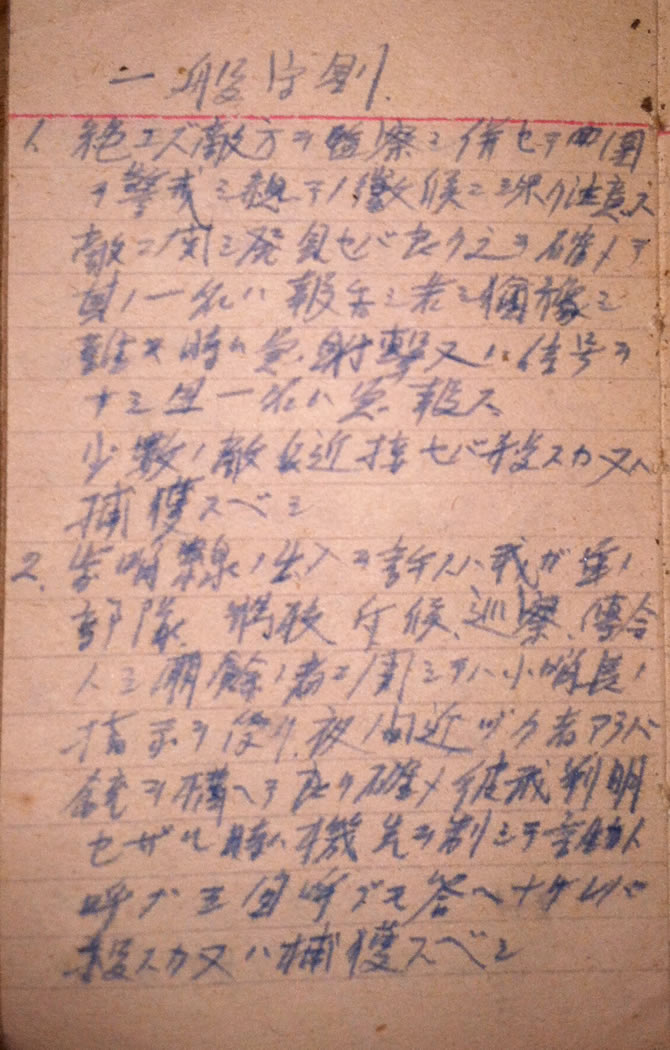 一般守則
1. 絶エズ敵方ヲ監察シ併セテ四周
ヲ警戒シ総テノ徴候ニ深ク注意ス
敵ニ関シ発見セバ良ク之ヲ確メテ
其ノ一名ハ報告シ若シ
難キ時ハ急射撃又ハ信号ヲ
ナシ且一名ハ急報ス
少数ノ敵兵近接セバ殺スカ又ハ
捕獲スベシ
2. 歩哨線ノ出入ヲ許スハ我ガ軍ノ
部隊、将校、斥候、巡察、傳令
ノミ 餘ノ者ニ関シテハ小哨長ノ
指示ヲ受ケ、夜間近ヅク者アラバ
銃ヲ構ヘテ良ク確メ彼我判明
セザル時ハ機先ヲ制シテ
呼ブ三回呼ブモ答ヘナケレバ
殺スカ又ハ捕獲スベシ